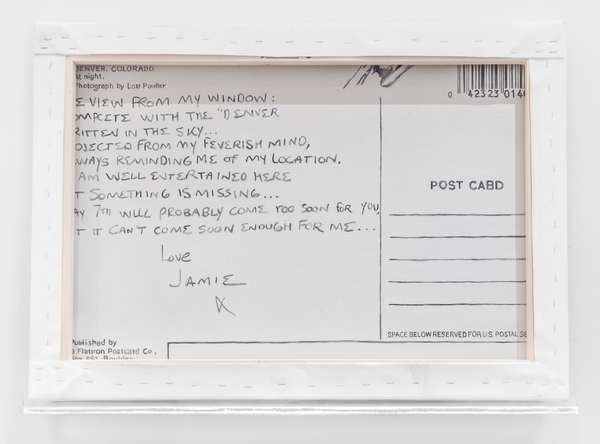 DENVER. COLORADO
At night.
Photograph by Lou Poulter
0 42323 014
E VIEW FROM MY WINDOW:
OMPLETE WITH THE "DENVER
RITTEN IN THE SKY...
OJECTED FROM MY FEVERISH MIND,
WAYS REMINDING ME OF MY LOCATION.
AM WELL ENTERTAINED HERE
T SOMETHING IS MISSING...
AY 7TH WILL PROBABLY COME TOO SOON FOR YOU,
T IT CAN'T COME SOON ENOUGH FOR ME...
Love
JAMIE
X
POST CABD
SPACE BELOW RESERVED FOR U.S. POSTAL SE
Published by
Flatiron Postcard Co.,
Boulder